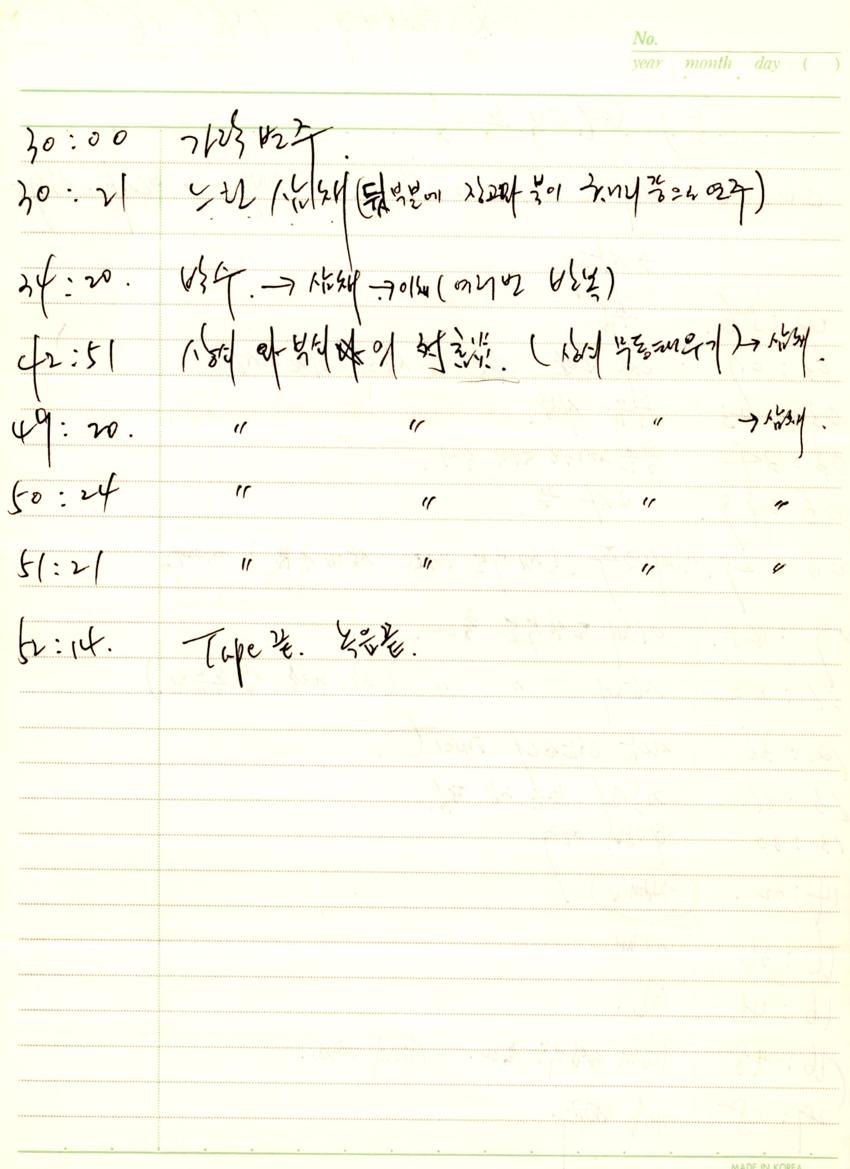 No.
year month day ( )
30:00 가락 변주.
30:21 느린 삼채 (뒷부분에 장고와 북이 연주)
34:20. 박수. → 삼채 → 이채 (여러번 반복)
42:51 상쇠와 부쇠의 (상쇠 무동태우기) → 삼채.
49:20. 〃 〃 〃 → 삼채.
50:24 〃 〃 〃 〃
51:21 〃 〃 〃 〃
52:14. Tape 끝. 녹음끝.
MADE IN KOREA